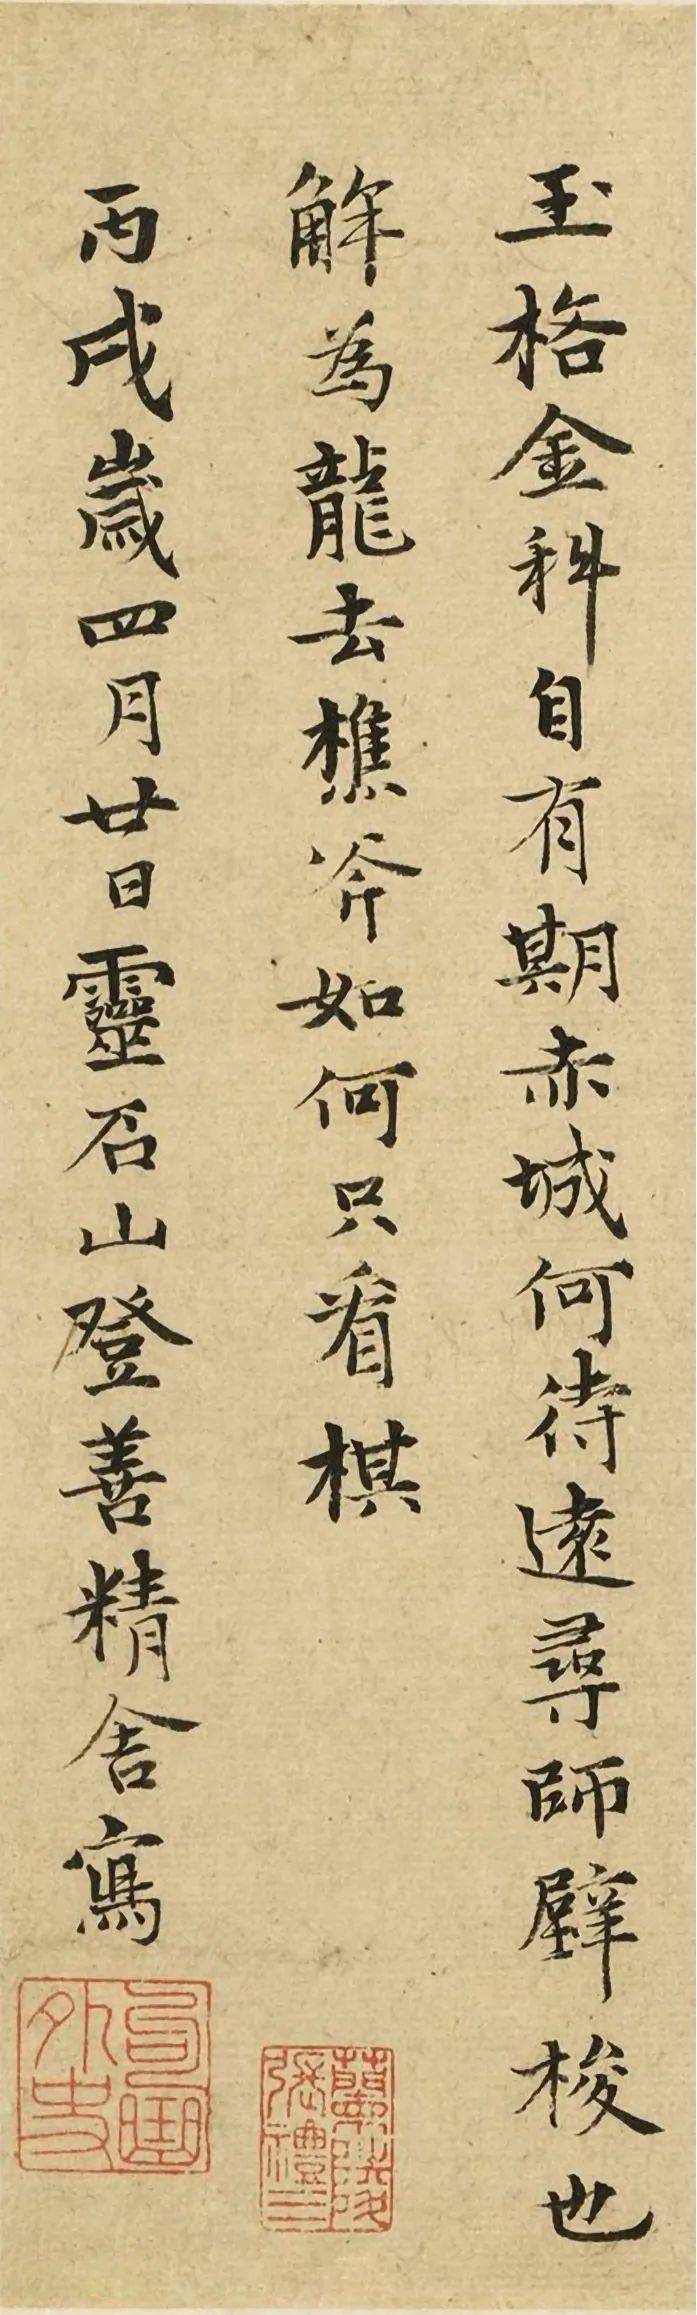 玉格金科自有期赤城何待遠尋師壁梭也
解為龍去樵斧如何只看棋
丙戌歲四月廿日靈石山登善精舍寫
句曲外史
蘭陵張禮